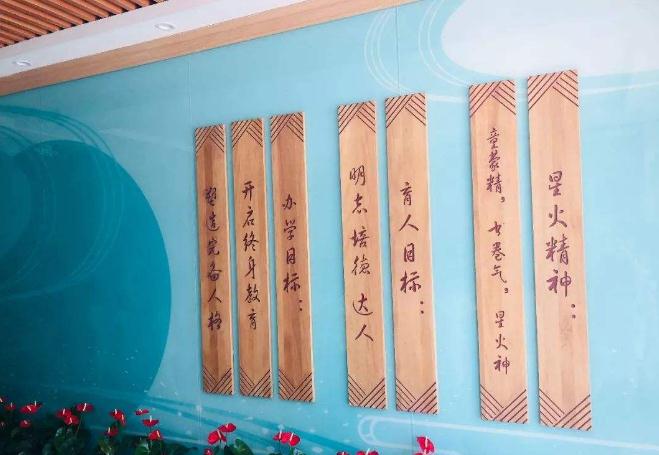 星火精神：
童蒙精，书卷气，星火神
育人目标：
明志培德达人
办学目标：
开启终身教育
塑造完备人格